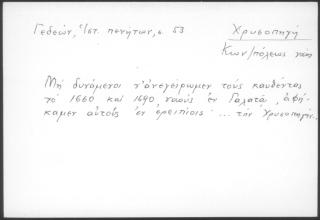 Γεδεών, Ἱστ. πενήτων, σ. 53
Χρυσοπηγή
Κων/πόλεως ναός
Μὴ δυνάμενοι ν' ἀνεγείρωμεν τοὺς καυθέντας
τὸ 1660 καὶ 1690 ναοὺς ἐν Γαλατᾷ, ἀφή-
καμεν αὐτοὺς ἐν ἐρειπίοις ... τὴν Χρυσοπηγήν..